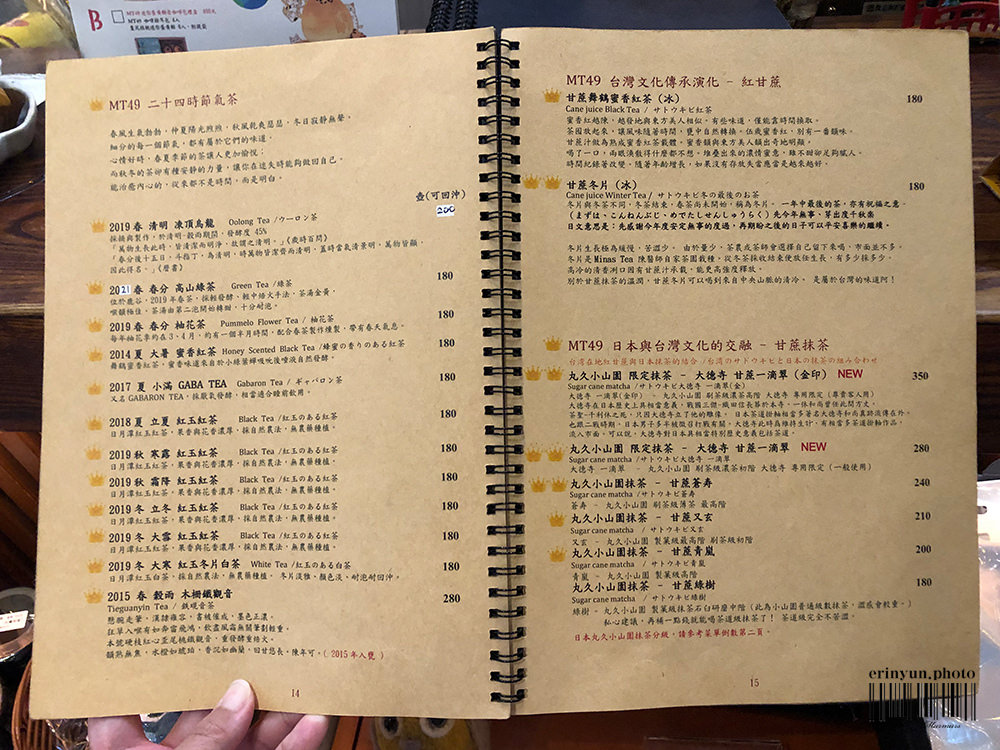 B
MT49
MT49 二十四時節氣茶
春風生氣勃勃，仲夏陽光煦煦，秋風乾爽瑟瑟，冬日寂靜無聲，
細分的每一個節氣，都有屬於它們的味道。
心情好時，春夏季節的茶讓人更加愉悅，
而秋冬的茶卻有種安靜的力量，讓你在迷失時能夠做回自己。
能治癒內心的，從來都不是時間，而是明白。
壺(可回沖)
200
2019 春 清明 凍頂烏龍 Oolong Tea /ウーロン茶
採摘與製作，於清明-穀雨期間，發酵度 45%
「萬物生長此時，皆清潔而明淨，故謂之清明。」《歲時百問》
「春分後十五日，斗指丁，為清明，時萬物皆潔齊而清明，蓋時當氣清景明，萬物皆顯，
因此得名。」《曆書》
180
2021 春 春分 高山綠茶 Green Tea /綠茶
位於鹿谷，2019年春茶，採輕發酵、輕中焙火手法，茶湯金黃，
喉韻極佳，茶湯由第二泡開始轉甜，十分耐泡。
180
2019 春 春分 柚花茶 Pummelo Flower Tea / 柚花茶
每年柚花季約在3、4月，約有一個半月時間，配合春茶製作燻製，帶有春天氣息。
180
2014 夏 大暑 蜜香紅茶 Honey Scented Black Tea /蜂蜜の香りのある紅茶
舞鶴蜜香紅茶，蜜香味道來自於小綠葉蟬吸吮後唾液自然發酵。
180
2017 夏 小滿 GABA TEA Gabaron Tea / ギャバロン茶
又名GABARON TEA，採厭氧發酵，相當適合睡前飲用。
180
2018 夏 立夏 紅玉紅茶 Black Tea /紅玉のある紅茶
日月潭紅玉紅茶，果香與花香濃厚，採自然農法，無農藥種植。
180
2019 秋 寒露 紅玉紅茶 Black Tea /紅玉のある紅茶
日月潭紅玉紅茶，果香與花香濃厚，採自然農法，無農藥種植。
180
2019 秋 霜降 紅玉紅茶 Black Tea /紅玉のある紅茶
日月潭紅玉紅茶，果香與花香濃厚，採自然農法，無農藥種植。
180
2019 冬 立冬 紅玉紅茶 Black Tea /紅玉のある紅茶
日月潭紅玉紅茶，果香與花香濃厚，採自然農法，無農藥種植。
180
2019 冬 大雪 紅玉紅茶 Black Tea /紅玉のある紅茶
日月潭紅玉紅茶，果香與花香濃厚，採自然農法，無農藥種植。
180
2019 冬 大寒 紅玉冬片白茶 White Tea /紅玉のある白茶
日月潭紅玉白茶，採自然農法，無農藥種植，冬片淡雅、顏色淡、耐泡耐回沖。
180
2015 春 穀雨 木柵鐵觀音
280
Tieguanyin Tea / 鉄観音茶
本號硬枝紅心歪尾桃鐵觀音，重發酵重焙火。
韻熟無焦，水橙如琥珀，香沉如幽蘭，回甘悠長。陳年可。(2015年入甕)
14
MT49 台灣文化傳承演化 - 紅甘蔗
甘蔗舞鶴蜜香紅茶 (冰)
180
Cane juice Black Tea / サトウキビ紅茶
蜜香紅越陳，越發地與東方美人相似，有些味道，僅能靠時間換取。
茶園放起來，讓風味隨著時間，甕中自然轉換。伍歲蜜香紅，別有一番韻味。
甘蔗汁做為熟成蜜香紅茶載體，蜜香韻與東方美人韻出奇地明顯，
喝了一口，兩眼渙散得什麼都不想。堆疊出來的濃情蜜意，雖不回卻足夠膩人。
時間紀錄著改變，隨著年齡增長，如果沒有存放失當應當是越來越好。
甘蔗冬片 (冰)
180
Cane juice Winter Tea / サトウキビ冬の最後のお茶
冬片與冬茶不同，冬茶結束，春茶尚未開始，稱為冬片。一年中最後的茶，亦有祝福之意。
(まずは、こんねんぶじ、めでたしせんしゅうらく) 先今年無事，芽出度千秋楽
日文意思是：先感謝今年度安定無事的度過，再期盼之後的日子可以平安喜樂的繼續。
冬片生長極為緩慢，苦澀少。 由於量少，茶農或茶師會選擇自己留下來喝，市面並不多。
冬片是 Minas Tea 陳醫師自家茶園栽種，從冬茶採收結束便放任生長，有多少採多少。
高冷的清香冽口因有甘蔗汁承載，能更高強度釋放。
別於甘蔗抹茶的溫潤，甘蔗冬片可以喝到來自中央山脈的清冷、是屬於台灣的味道阿！
MT49 日本與台灣文化的交融 - 甘蔗抹茶
台灣在地紅甘蔗與日本抹茶的結合 /台湾のサトウキビと日本の抹茶の組み合わせ
丸久小山園 限定抹茶 - 大德寺 甘蔗一滴翠 (金印) NEW
350
Sugar cane matcha /サトウキビ大徳寺 一滴翠(金)
大德寺 一滴翠(金印) - 丸久小山園 刷茶級濃茶高階 大德寺 專用限定 (尊貴客人用)
大德寺在日本歷史上具相當意義，戰國三傑-織田信長葬於本寺。一休和尚曾任此間方丈，
茶聖-千利休之死，只因大德寺立了他的雕像。 日本茶道掛軸相當多著名大德寺和尚真跡流傳在外。
也跟二戰時期，日本男子多半被徵召行戰有關。大德寺此時為維持生計，有相當多茶道掛軸作品，
流入市面。可以說，大德寺對日本具相當特別歷史意義包括茶道。
丸久小山園 限定抹茶 - 大德寺 甘蔗一滴翠 NEW
280
Sugar cane matcha /サトウキビ大徳寺 一滴翠
大德寺 一滴翠 - 丸久小山園 刷茶級濃茶初階 大德寺 專用限定 (一般使用)
丸久小山園抹茶 - 甘蔗蒼寿
240
Sugar cane matcha /サトウキビ蒼寿
蒼寿 - 丸久小山園 刷茶級薄茶 最高階
丸久小山園抹茶 - 甘蔗又玄
210
Sugar cane matcha /サトウキビ又玄
又玄 - 丸久小山園 製菓級最高階 刷茶級初階
丸久小山園抹茶 - 甘蔗青嵐
200
Sugar cane matcha /サトウキビ青嵐
青嵐 - 丸久小山園 製菓級高階
丸久小山園抹茶 - 甘蔗綠樹
180
Sugar cane matcha /サトウキビ綠樹
綠樹 - 丸久小山園 製菓級抹茶石臼研磨中階 (此為小山園普通級數抹茶，澀感會較重。)
私心建議，再補一點錢就能喝茶道級抹茶了！ 茶道級完全不苦澀。
日本丸久小山園抹茶分級，請參考菜單倒數第二頁。
15
erinyun.photo